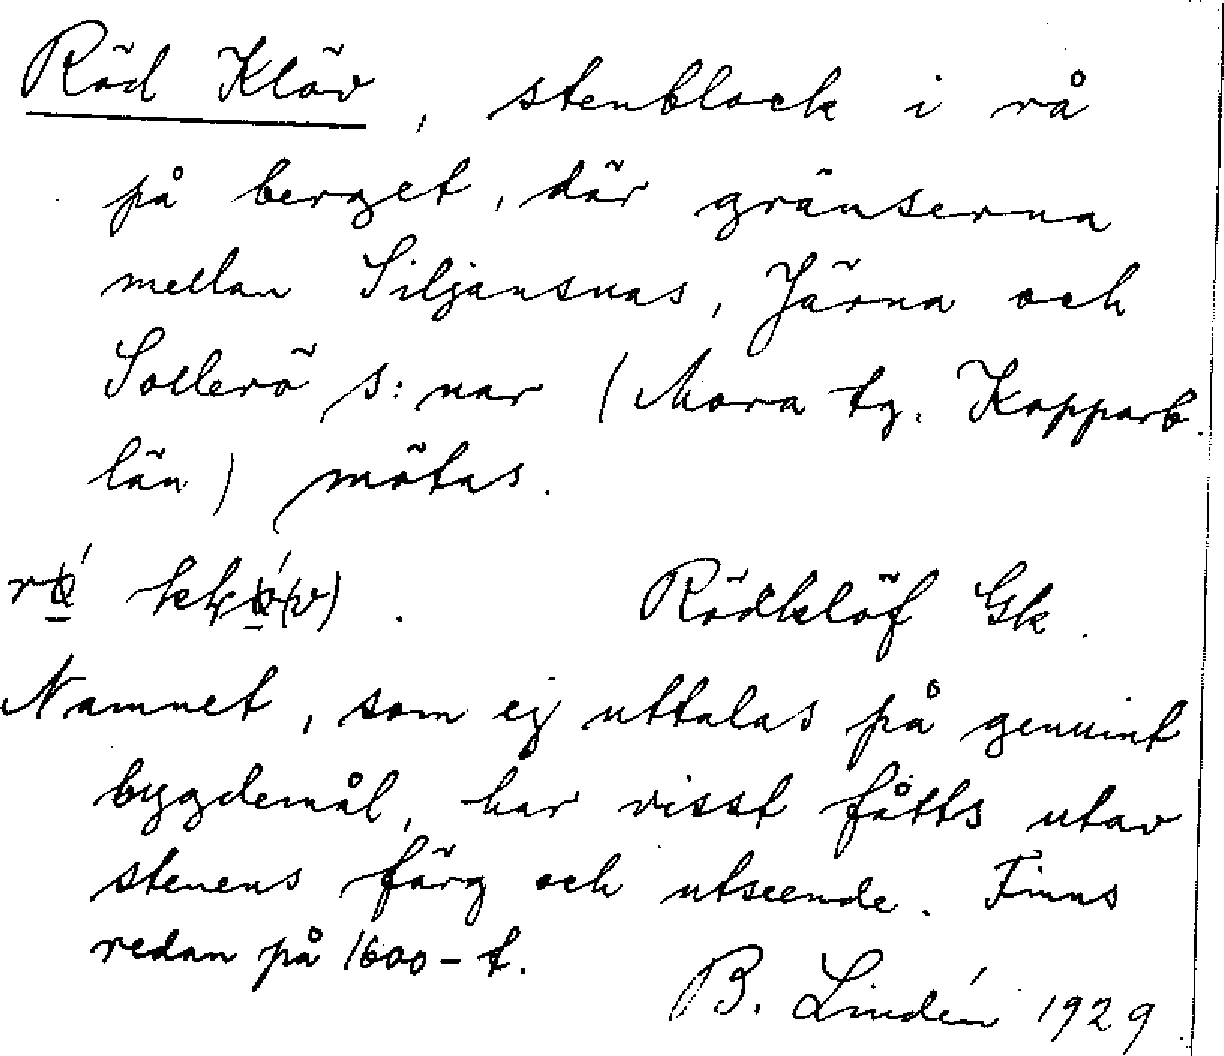 Röd Klöv, stenblock i rå
på berget, där gränserna
mellan Siljansnas, Järna och
Sollerö s:nar (Mora tg. Kopparb.
län) mötas.
Rödklöf Gk.
Namnet, som ej uttalas på genuint
bygdemål, har visst fåtts utav
stenens färg och utseende. Finns
redan på 1600-t.
B. Lindén 1929